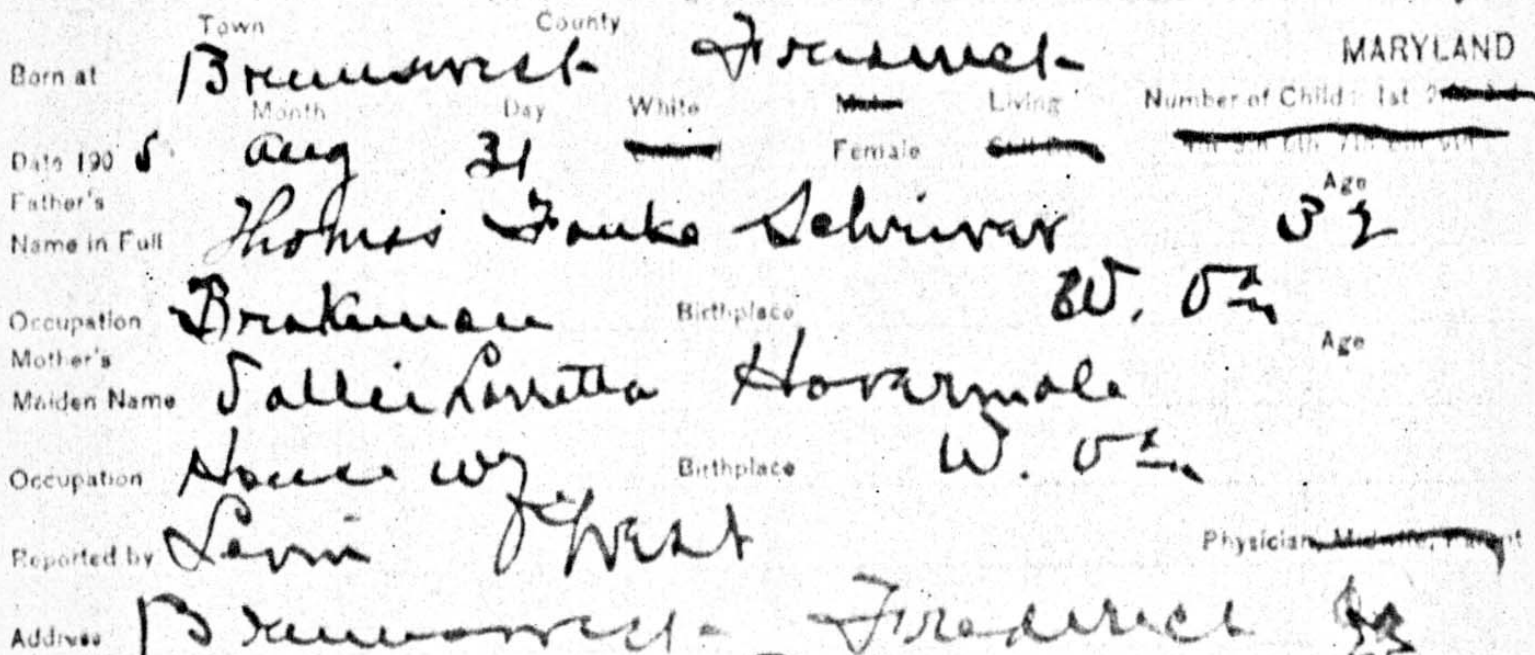 Town County
Born at Brunswick Frederick MARYLAND
Month Day White Male Living Number of Child: 1st
Date 190 5 Aug 31 Female
Father's Age
Name in Full Thomas Schriver 32
Occupation Brakeman Birthplace W. Va
Mother's Age
Maiden Name Sallie Lorretta Hovermale
Occupation House wife Birthplace W. Va
Reported by Levin West Physician, Midwife, Parent
Address Brunswick Frederick